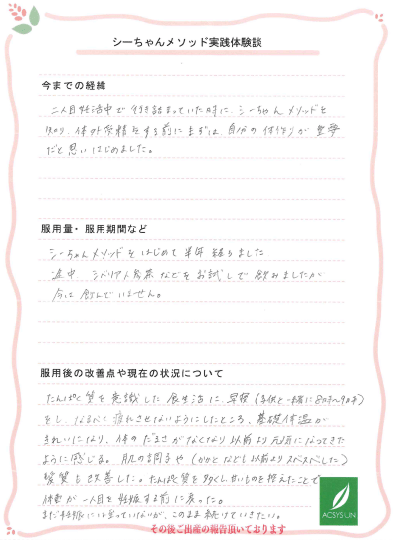 シーちゃんメソッド実践体験談
今までの経緯
二人目妊活中で行き詰まっていた時に、シーちゃんメソッドを
知り、体外受精をする前にまずは自分の体作りが重要
だと思いはじめました。
服用量・服用期間など
シーちゃんメソッドをはじめて半年経ちました
途中、シベリア人参茶などをお試しで飲みましたが
今は飲んでいません。
服用後の改善点や現在の状況について
たんぱく質を意識した食生活に、早寝(子供と一緒に8時〜9時)
をし、なるべく疲れさせないようにしたところ、基礎体温が
きれいになり、体のだるさがなくなり以前より元気になってきた
ように感じる。肌の調子や(かかとなども以前よりスベスベした)
髪質も改善した。たんぱく質を多くし甘いものを控えたことで
体重が一人目を妊娠する前に戻った。
まだ妊娠には至っていないが、このまま続けていきたい。
その後ご出産の報告頂いております
ACSYSUN